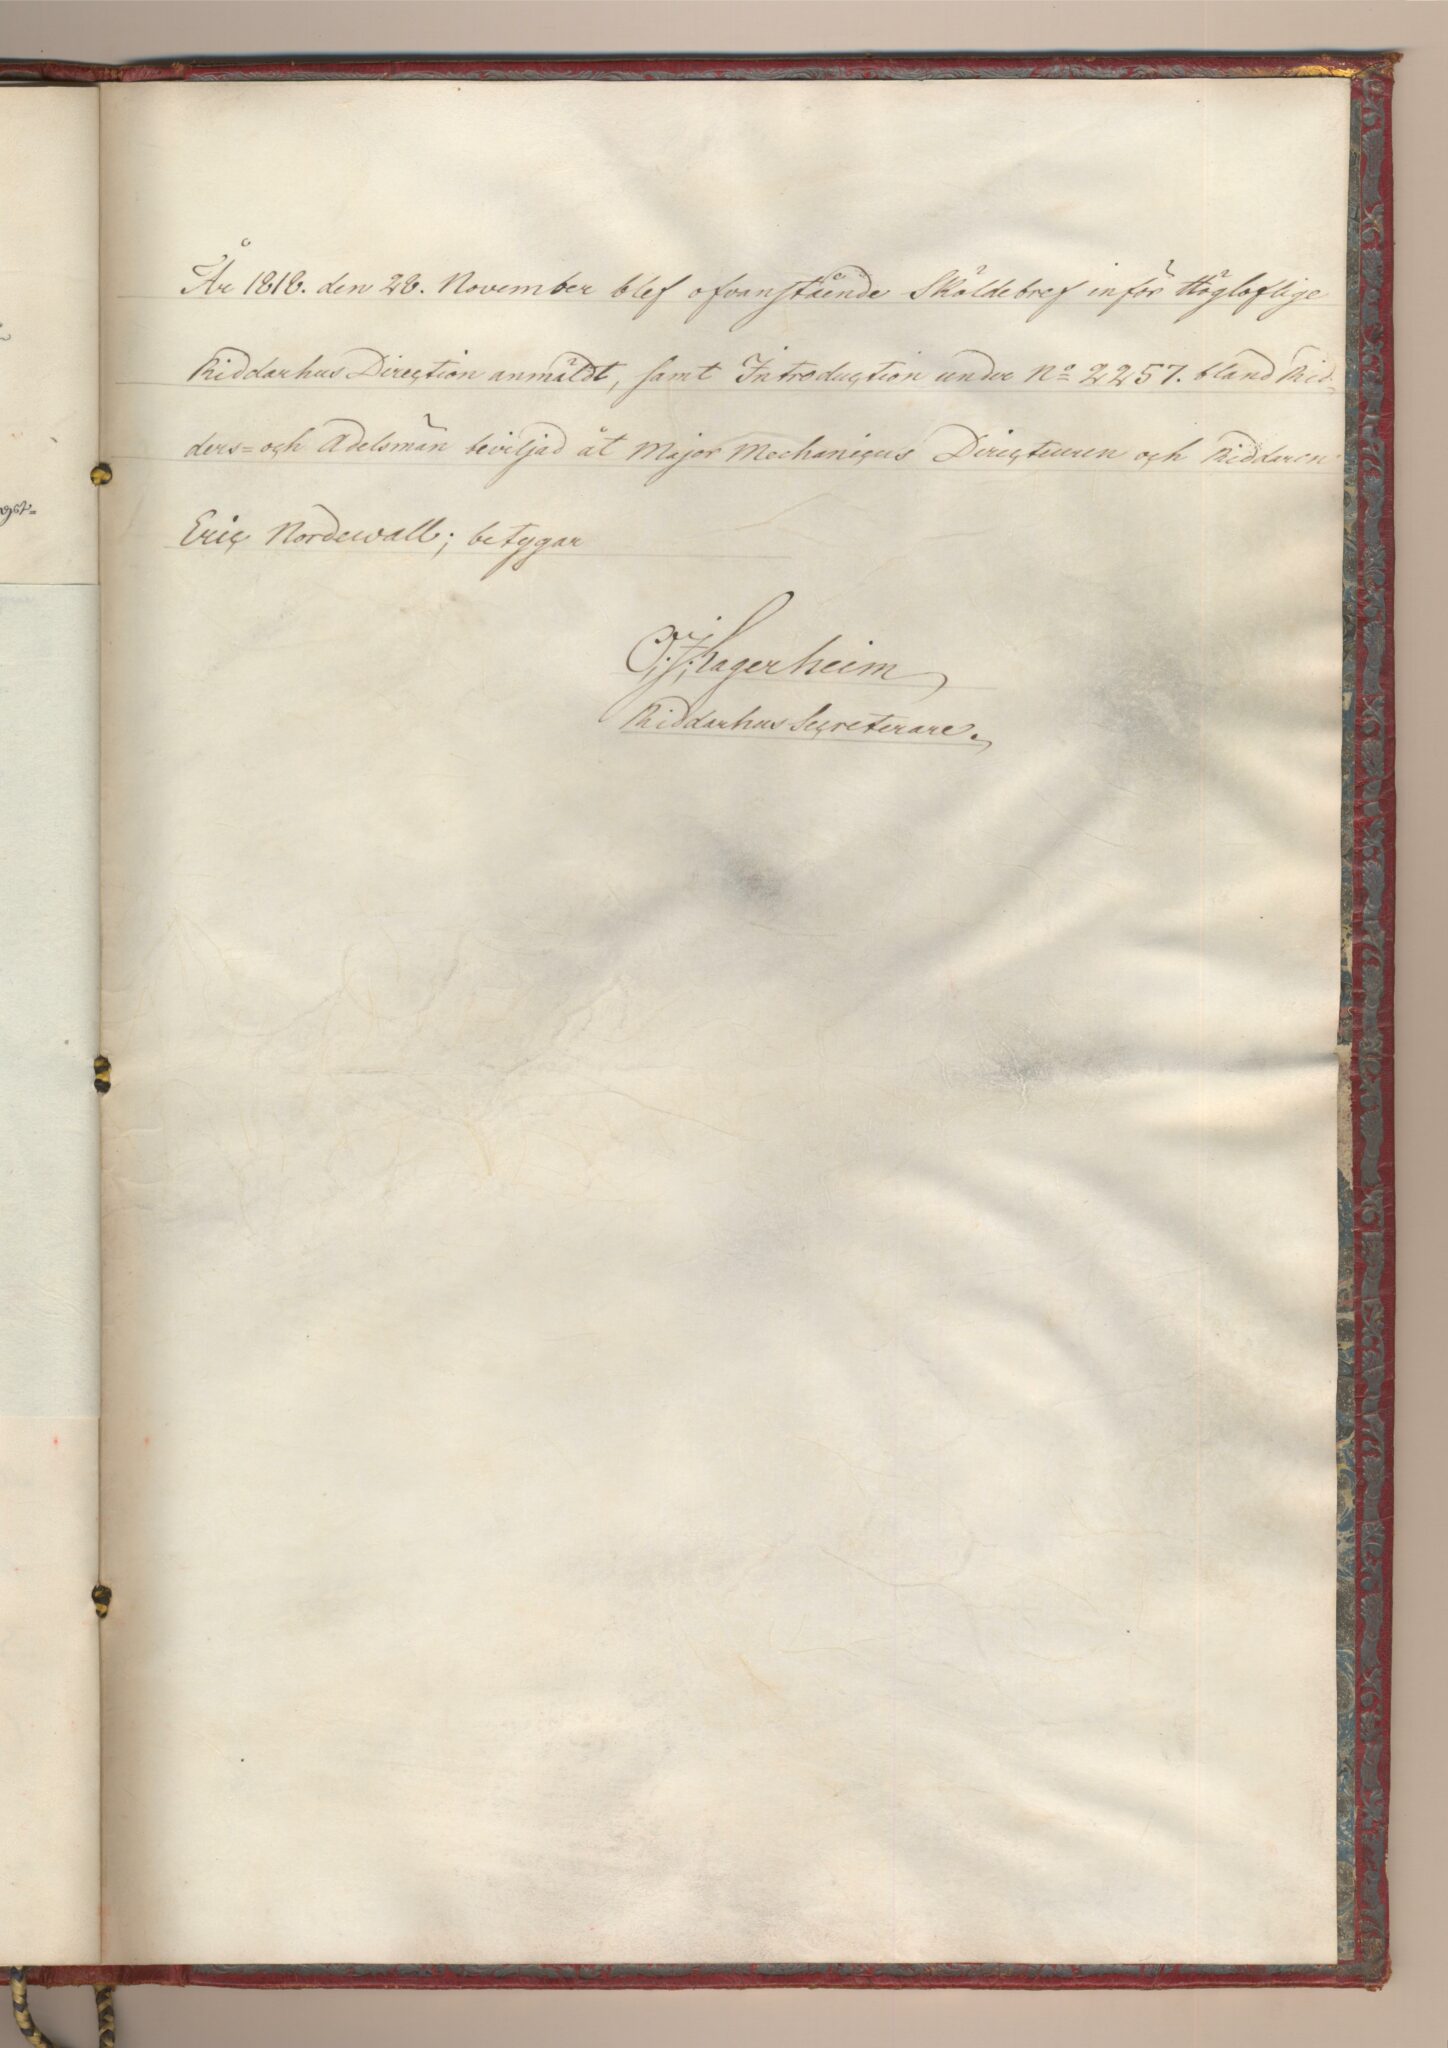 År 1818. den 28. November blef ofvanstående Sköldebref inför Högloflige
Riddarhus Direction anmäldt, samt Introduction under No 2257. bland Rid-
ders- och Adelsmän beviljad åt Major Mechanicus Directeuren och Riddaren
Eric Nordewall; betygar
C. F. Lagerheim
Riddarhus Secreterare.